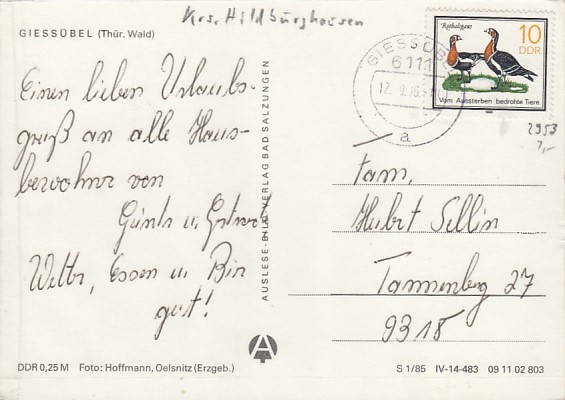 Krs. Hildburghausen
GIESSÜBEL (Thür. Wald)
Einen lieben Urlaubs-
gruß an alle Haus-
bewohner von
Günter u.
Wetter, Essen u Bier
gut!
AUSLESE-BILD-VERLAG BAD SALZUNGEN
GIESSÜB
6111
12.9.86
a
Rothalsgans
10
DDR
Vom Aussterben bedrohte Tiere
2953
7,-
Fam,
Hubert Sellin
Tannenberg 27
9318
A
DDR 0,25 M Foto: Hoffmann, Oelsnitz (Erzgeb.)
S 1/85 IV-14-483 09 11 02 803